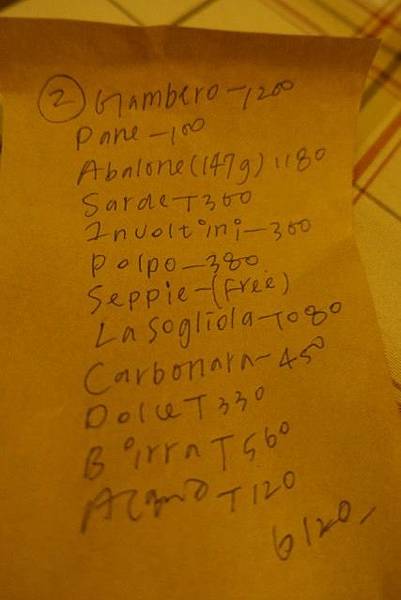 ② Gambero-1200
Pane-100
Abalone(147g) 1180
Sarde-360
Involtini-360
Polpo-380
Seppie-(Free)
La Sogliola-1080
Carbonara-450
Dolce-330
Birra-560
Acqua-120
6120